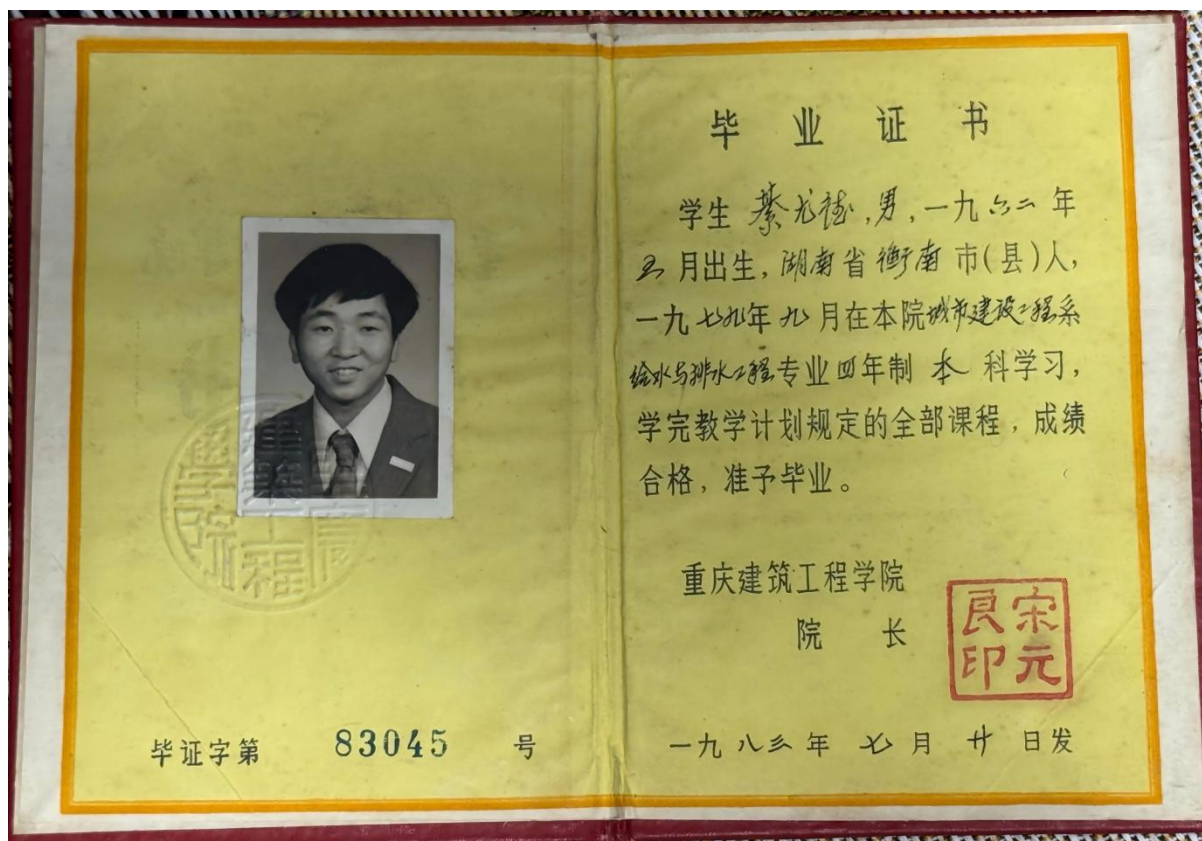 重慶建築工程學院
毕证字第 83045 号
毕业证书
学生 ,男,一九六二年
五月出生,湖南省衡南市(县)人,
一九七九年九月在本院城市建设工程系
给水与排水工程专业四年制本科学习,
学完教学计划规定的全部课程,成绩
合格,准予毕业。
重庆建筑工程学院
院 长
宋元
良印
一九八三年七月廿日发